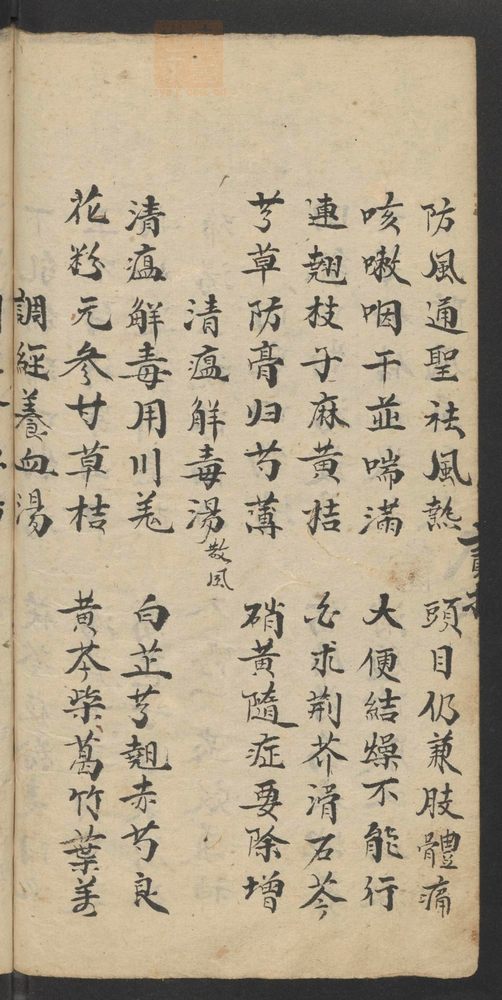 防風通聖祛風熱 頭目仍兼肢體痛
咳嗽咽干並喘滿 大便結燥不能行
連翹枝子麻黃桔 白求荆芥滑石芩
芎草防膏归芍薄 硝黃隨症要除增
清瘟解毒湯 散风
清瘟解毒用川羌 白芷芎翹赤芍良
花粉元参甘草桔 黃芩柴葛竹葉姜
調經養血湯